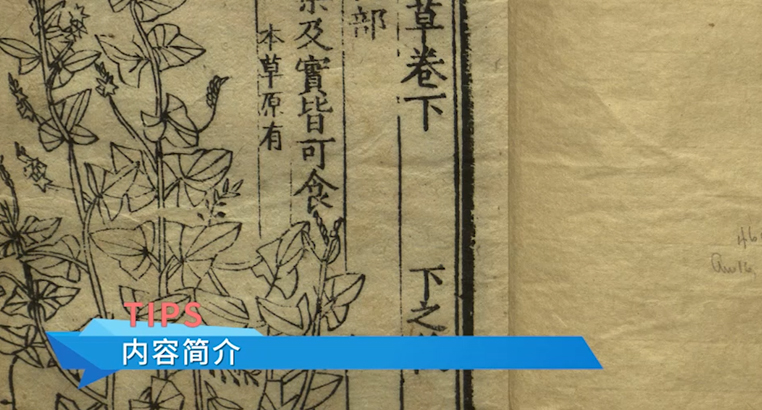 草卷下
下之
部
葉及實皆可食
本草原有
TIPS
内容简介